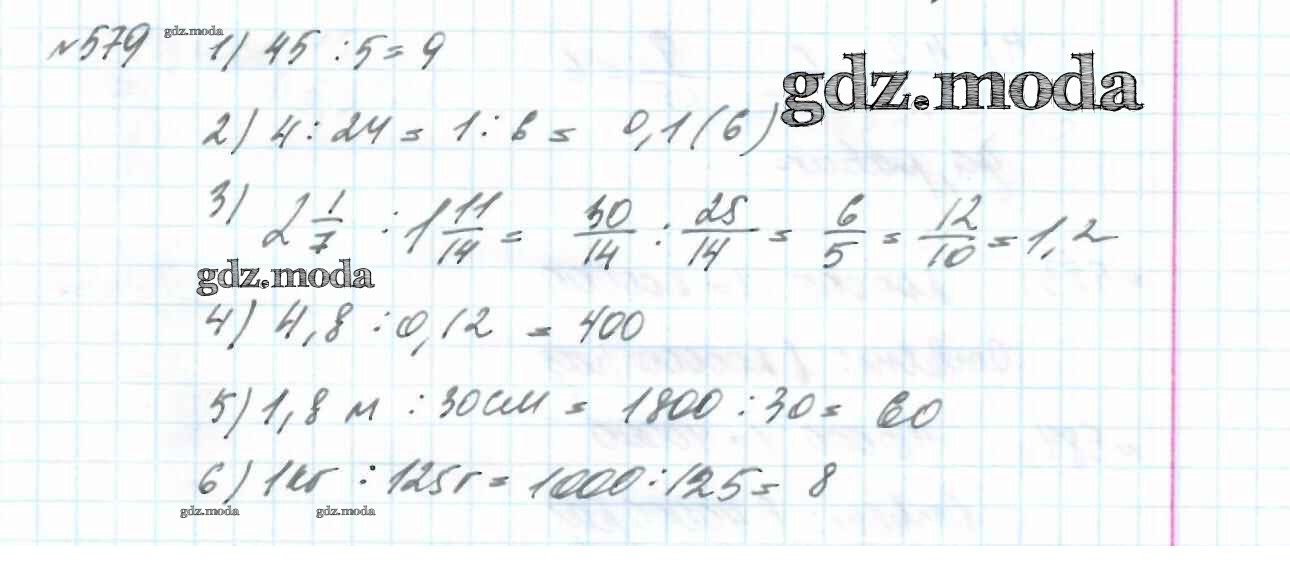 №579 gdz.moda 1) 45 : 5 = 9
gdz.moda
2) 4 : 24 = 1 : 6 = 0,1(6)
3) 2 1/7 : 1 11/14 = 30/14 : 25/14 = 6/5 = 12/10 = 1,2
gdz.moda
4) 4,8 : 0,12 = 400
5) 1,8 м : 30 см = 1800 : 30 = 60
6) 1 кг : 125 г = 1000 : 125 = 8
gdz.moda gdz.moda